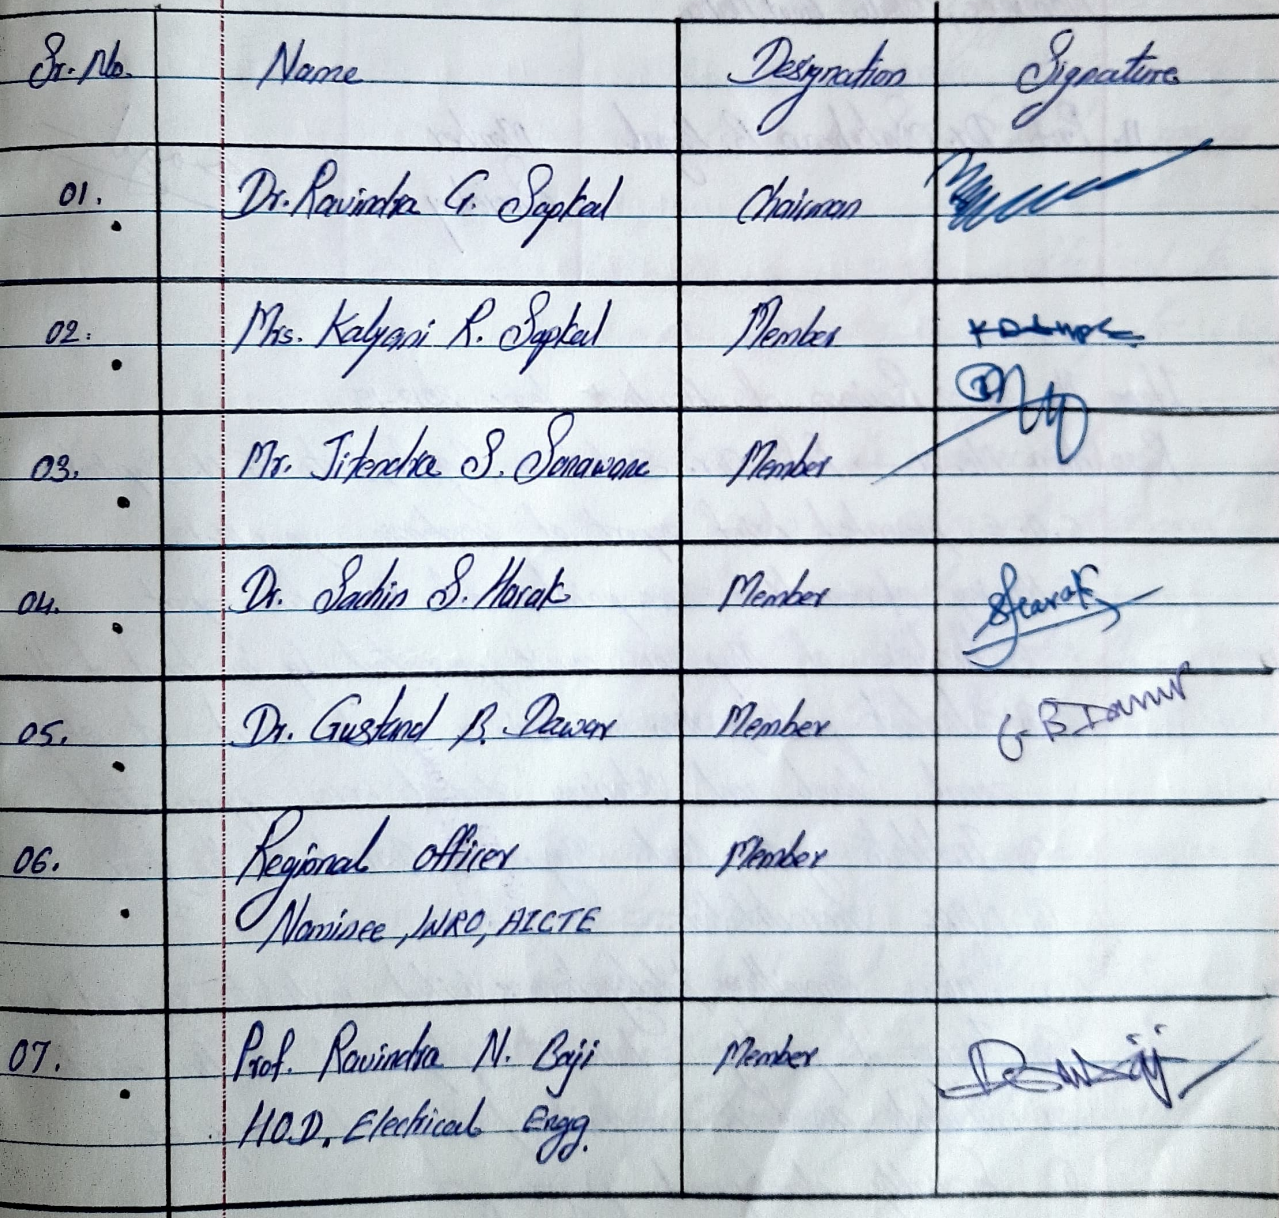 Sr. No. Name Designation Signature
01. Dr. Ravindra G. Sapkal Chairman
02. Mrs. Kalyani R. Sapkal Member
03. Mr. Jitendra S. Sonawane Member
04. Dr. Sachin S. Harak Member SHarak
05. Dr. Gustand B. Dawar Member G B Dawar
06. Regional officer Member
Nominee, WRO, AICTE
07. Prof. Ravindra N. Baji Member
H.O.D. Electrical Engg.